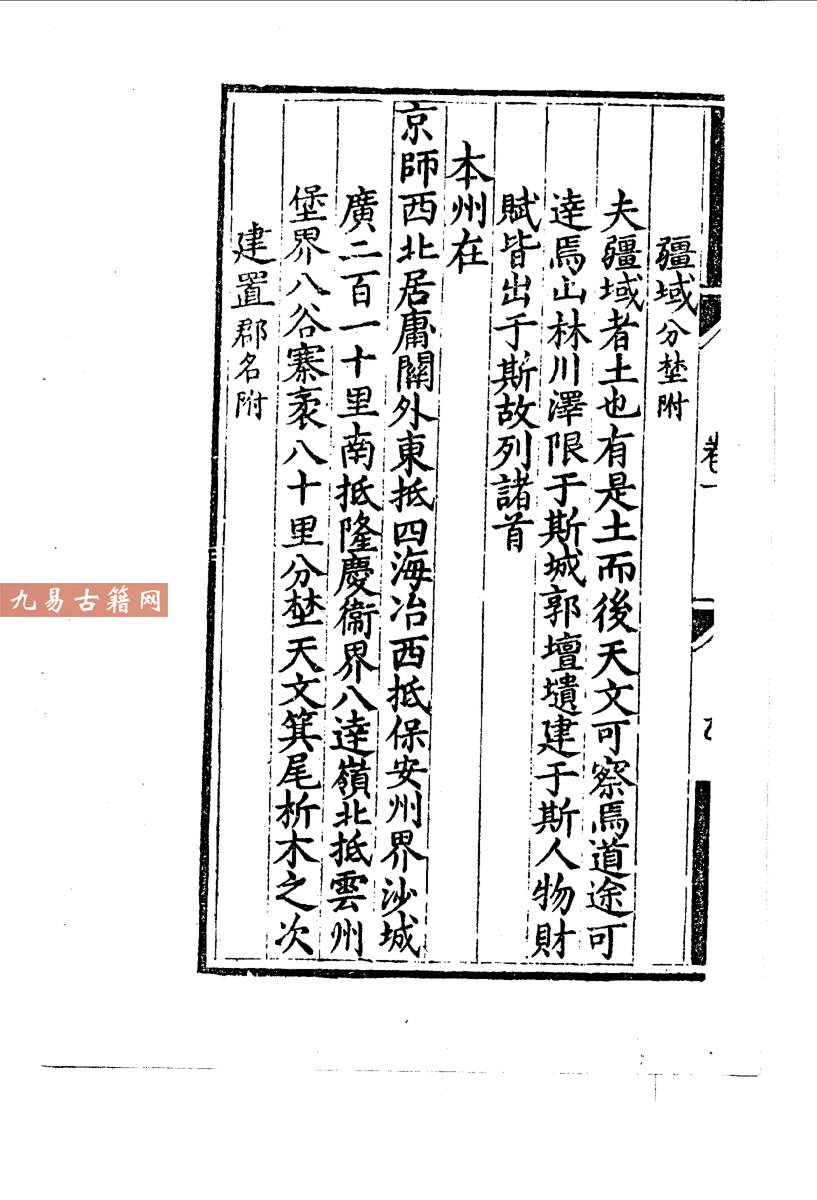 卷一
疆域分埜附
夫疆域者土也有是土而後天文可察焉道途可
達焉山林川澤限于斯城郭壇壝建于斯人物財
賦皆出于斯故列諸首
本州在
京師西北居庸關外東抵四海冶西抵保安州界沙城
廣二百一十里南抵隆慶衞界八達嶺北抵雲州
堡界八谷寨袤八十里分埜天文箕尾析木之次
建置郡名附
九易古籍网